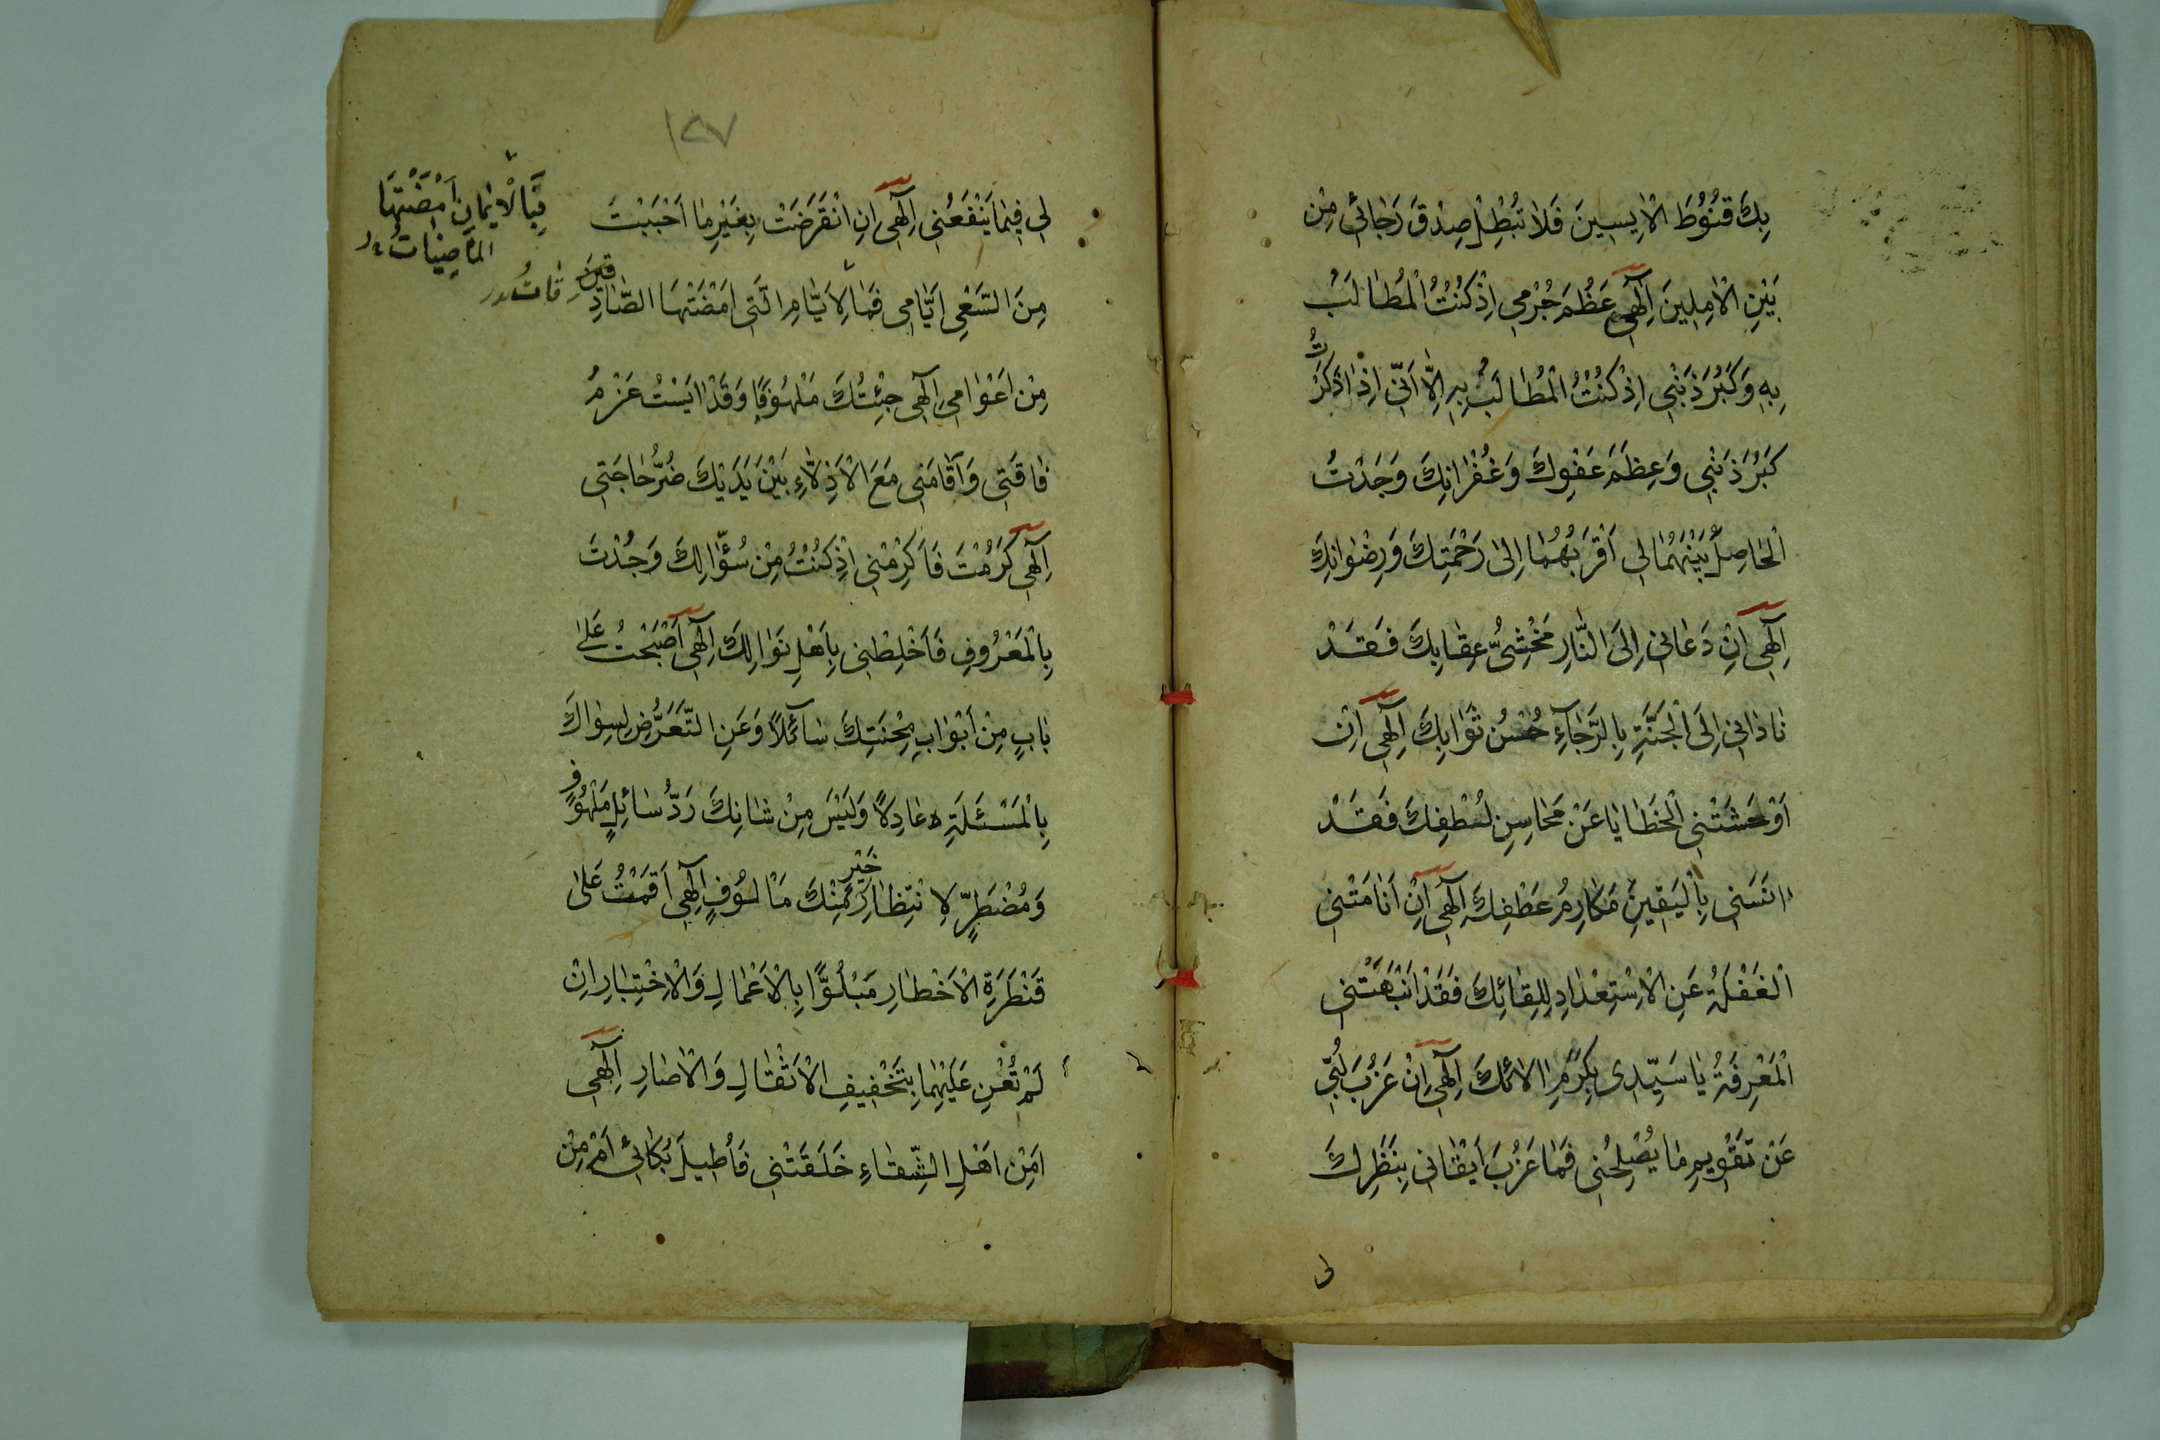 بِكَ قُنُوطَ الْاٰيِسِينَ فَلَا تُبْطِلْ صِدْقَ رَجٰائِي مِنْ
بَيْنِ الْاٰمِلِينَ اِلٰهِي عَظُمَ جُرْمِي اِذْ كُنْتُ الْمُطٰالَبَ
بِهِ وَكَبُرَ ذَنْبِي اِذْ كُنْتُ الْمُطٰالَبَ بِهِ اِلّٰا اَنِّي اِذٰا ذَكَرْتُ
كَبُرَ ذَنْبِي وَعِظَمَ عَفْوِكَ وَغُفْرٰانِكَ وَجَدْتُ
الْحٰاصِلَ بَيْنَهُمٰا لِي اَقْرَبُهُمٰا اِلىٰ رَحْمَتِكَ وَرِضْوٰانِكَ
اِلٰهِي اِنْ دَعٰانِي اِلَى النّٰارِ مَخْشِيُّ عِقٰابِكَ فَقَدْ
نٰادٰانِي اِلَى الْجَنَّةِ بِالرَّجٰاءِ حُسْنُ ثَوٰابِكَ اِلٰهِي اِنْ
اَوْحَشَتْنِي الْخَطٰايٰا عَنْ مَحٰاسِنِ لُطْفِكَ فَقَدْ
انَسَنِي بِالْيَقِينِ مَكٰارِمُ عَطْفِكَ اِلٰهِي اِنْ اَنٰامَتْنِي
الْغَفْلَةُ عَنِ الْاِسْتِعْدٰادِ لِلِقٰائِكَ فَقَدْ اَنْبَهَتْنِي
الْمَعْرِفَةُ يٰا سَيِّدِي بِكَرَمِ اٰلائِكَ اِلٰهِي اِنْ عَزُبَ لُبِّي
عَنْ تَقْوِيمِ مٰا يُصْلِحُنِي فَمٰا عَزُبَ اَيْقٰانِي بِنَظَرِكَ
لى
١٤٧
لِي فِيمٰا يَنْفَعُنِي اِلٰهِي اِنِ انْقَرَضَتْ بِغَيْرِ مٰا اَحْبَبْتَ
مِنَ السَّعْيِ اَيّٰامِي فَمٰا لِاَيّٰامِ الَّتِي اَمْضَتْهَا الصّٰادِقِينَ
فَبِالْاِيمٰانِ اَمْضَتْهَا
الْمٰاضِيٰاتُ
قٰاتُ
مِنْ اَعْوٰامِي اِلٰهِي جِئْتُكَ مَلْهُوفًا وَقَدْ اَيَسْتُ عَزْمُ
فٰاقَتِي وَاَقٰامَنِي مَعَ الْاَذِلّٰاءِ بَيْنَ يَدَيْكَ ضُرُّ حٰاجَتِي
اِلٰهِي كَرَمْتَ فَاَكْرِمْنِي اِذْ كُنْتُ مِنْ سُؤّٰالِكَ وَجُدْتَ
بِالْمَعْرُوفِ فَاَخْلِطْنِي بِاَهْلِ نَوٰالِكَ اِلٰهِي اَصْبَحْتُ عَلىٰ
بٰابٍ مِنْ اَبْوٰابِ مِحْنَتِكَ سٰائِلًا وَعَنِ التَّعَرُّضِ لِسِوٰاكَ
بِالْمَسْئَلَةِ عٰادِلًا وَلَيْسَ مِنْ شٰانِكَ رَدُّ سٰائِلٍ مَلْهُوفٍ
وَمُضْطَرٍّ لِانْتِظٰارِ خَيْرٍ مِنْكَ مَالُوفٍ اِلٰهِي اَقَمْتُ عَلىٰ
قَنْطَرَةِ الْاَخْطٰارِ مَبْلُوًّا بِالْاَعْمٰالِ وَالْاِخْتِبٰارِ اِنْ
لَمْ تُعْنِ عَلَيْهِمٰا بِتَخْفِيفِ الْاَثْقٰالِ وَالْاٰصٰارِ اِلٰهِي
اَمِنْ اَهْلِ الشِّقٰاءِ خَلَقْتَنِي فَاُطِيلَ بُكٰائِي اَمْ مِنْ